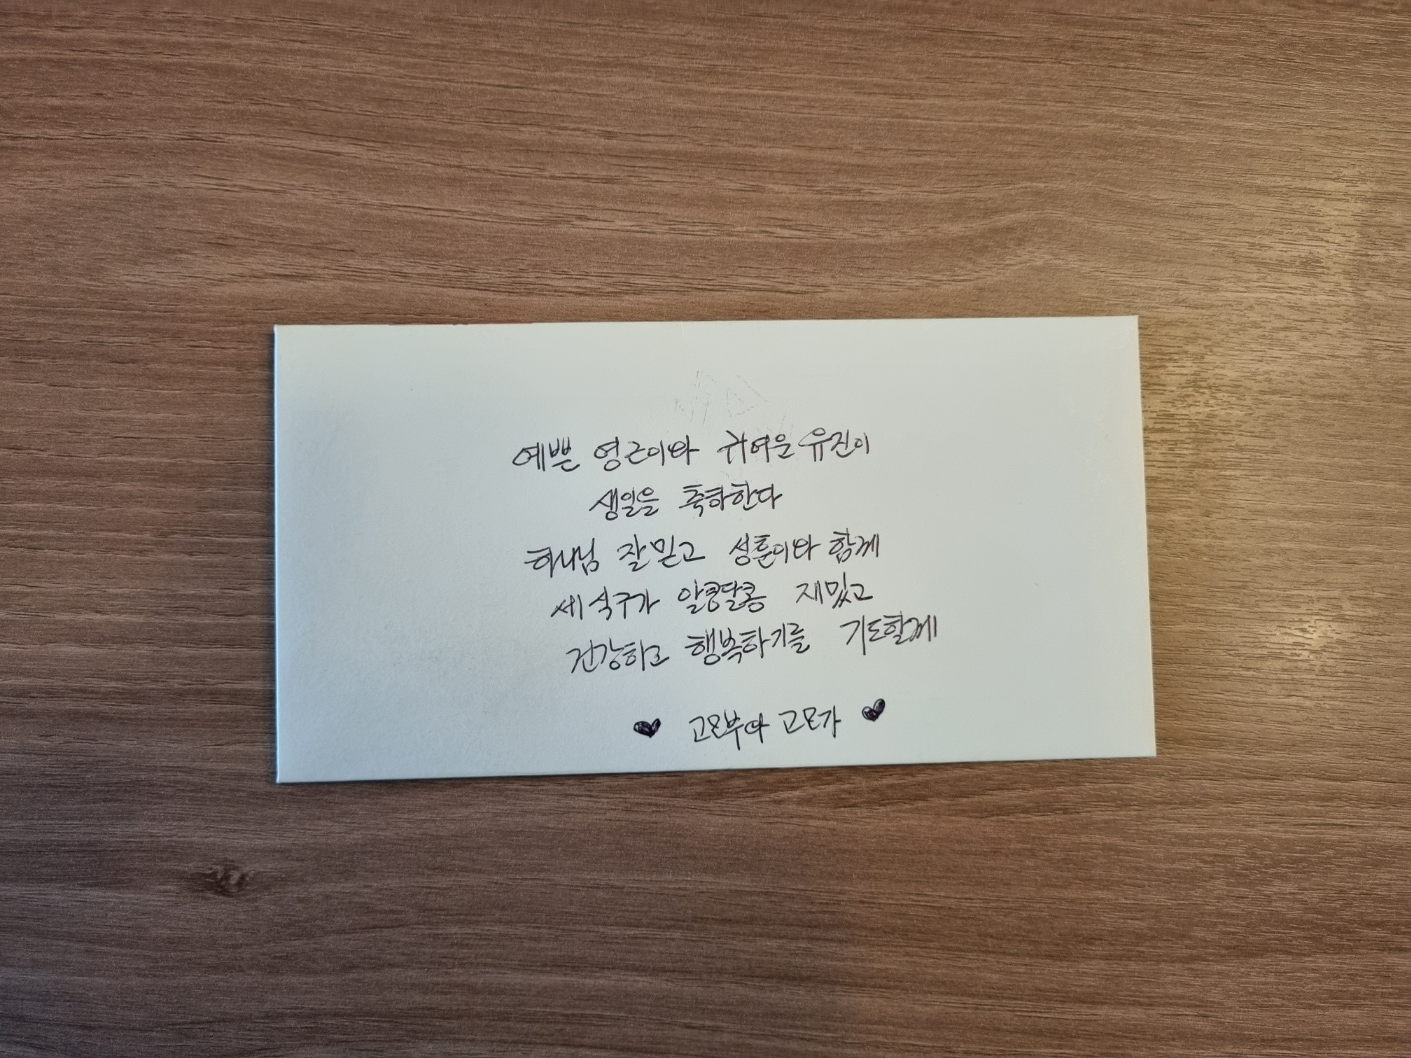 예쁜 영근이와 귀여운 유진이
생일을 축하한다
하나님 잘 믿고 성훈이와 함께
세식구가 알콩달콩 재밌고
건강하고 행복하기를 기도할께
♥ 고모부와 고모가 ♥